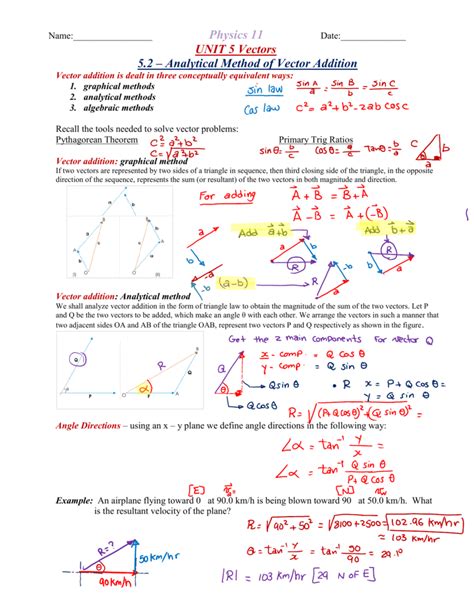 Name:________________ Physics 11 Date:______________
UNIT 5 Vectors
5.2 – Analytical Method of Vector Addition
Vector addition is dealt in three conceptually equivalent ways:
1. graphical methods
2. analytical methods
3. algebraic methods
sin law sin A/a = sin B/b = sin C/c
cos law c² = a² + b² - 2ab cos C
Recall the tools needed to solve vector problems:
Pythagorean Theorem c² = a² + b² Primary Trig Ratios
c = √a² + b² sin θ = b/c cos θ = a/c tan θ = b/a
Vector addition: graphical method
If two vectors are represented by two sides of a triangle in sequence, then third closing side of the triangle, in the opposite
direction of the sequence, represents the sum (or resultant) of the two vectors in both magnitude and direction.
For adding A + B = B + A
A - B = A + (-B)
Add a+b
Add a+b
(a-b)
Vector addition: Analytical method
We shall analyze vector addition in the form of triangle law to obtain the magnitude of the sum of the two vectors. Let P
and Q be the two vectors to be added, which make an angle θ with each other. We arrange the vectors in such a manner that
two adjacent sides OA and AB of the triangle OAB, represent two vectors P and Q respectively as shown in the figure.
Get the 2 main components for vector Q
x - comp = Q cos θ
y - comp = Q sin θ
Q sin θ
Q cos θ
• R x = P + Q cos θ
y = Q sin θ
R = √(P+Q cos θ)² + (Q sin θ)²
Angle Directions – using an x – y plane we define angle directions in the following way:
∠α = tan⁻¹ y/x =
∠α = tan⁻¹ Q sin θ / P + Q cos θ
[E] [N]
Example: An airplane flying toward 0 at 90.0 km/h is being blown toward 90 at 50.0 km/h. What
is the resultant velocity of the plane?
R = √90² + 50² = √8100 + 2500 = 102.96 km/hr
≈ 103 km/hr
θ = tan⁻¹ y/x = tan⁻¹ 50/90 = 29.1°
|R| = 103 km/hr [29 N of E]
R = ?
50 km/hr
90 km/hr